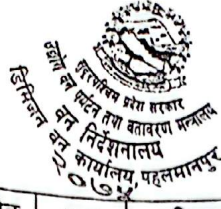 सुदूरपश्चिम प्रदेश सरकार
उद्योग वन पर्यटन तथा वातावरण मन्त्रालय
वन निर्देशनालय
डिभिजन वन कार्यालय, पहलमानपुर
२०७५